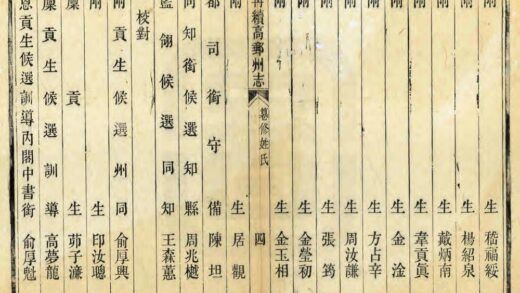 附生嵇福綏
附生楊紹泉
附生戴炳南
附生韋貢眞
附生金淦
附生方占辛
附生周汝謙
附生張筠
附生金瑩礽
附生金玉相
再續高郵州志 纂修姓氏 四
附生居觀
都司銜守備陳坦
同知銜候選知縣周兆樾
藍翎候選同知王森蕙
校對
附貢生候選州同俞厚興
附生印汝聰
廩貢生茆子濂
廩貢生候選訓導高夢龍
恩貢生候選訓導內閣中書銜俞厚魁